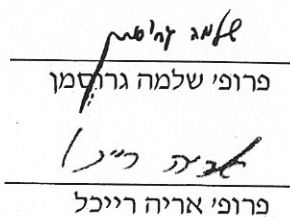 שלמה גרוסמן
פרופי שלמה גרוסמן
אריה רייכל
פרופי אריה רייכל